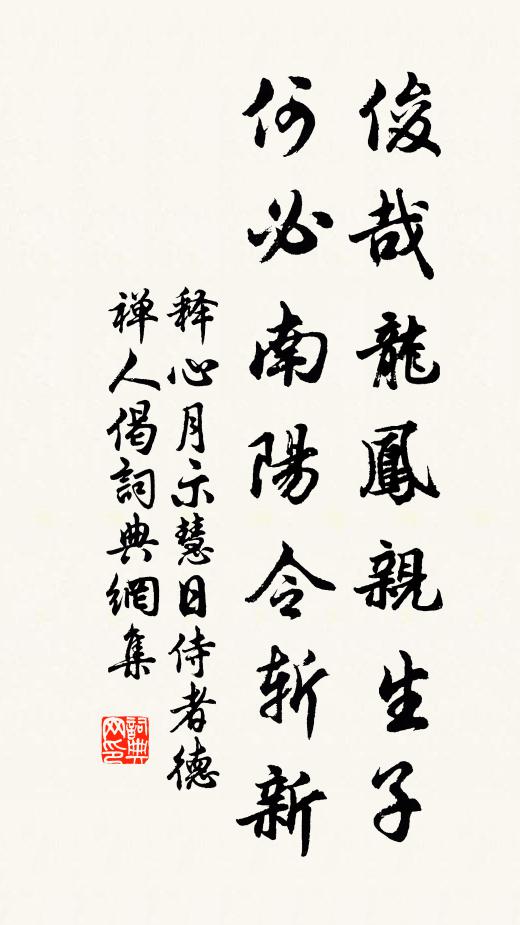 俊哉龍鳳親生子
何必南陽令斬新
释心月示慧日侍者德
禅人偈詞典網集
詞典网印